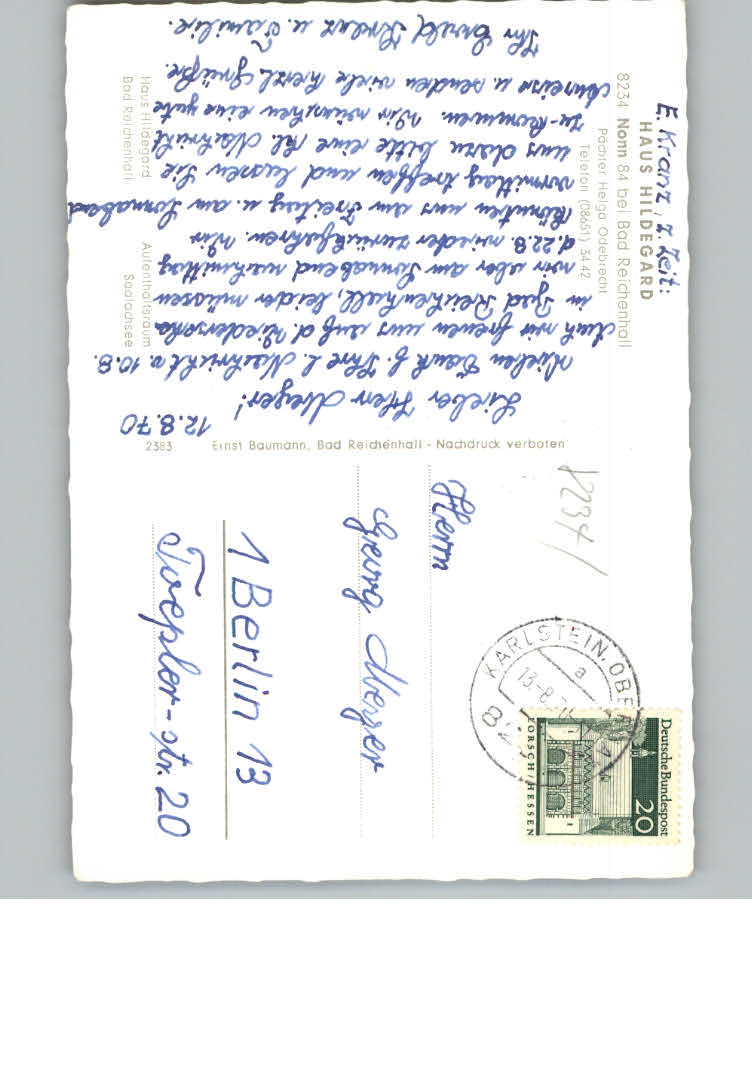 E. Kranz, z. Zeit:
HAUS HILDEGARD
8234 Nonn 84 bei Bad Reichenhall
Pächter Helga Odebrecht
Telefon (08651) 34 42
Haus Hildegard
Bad Reichenhall
Aufenthaltsraum
Saalachsee
12.8.70
Lieber Herr Meyer!
Vielen Dank f. Ihre l. Nachricht v. 10.8.
Auch wir freuen uns auf d. Wiedersehn
in Bad Reichenhall, leider müssen
wir aber am Sonnabend nachmittag
d. 22.8. wieder zurückfahren. Wir
könnten uns am Freitag u. am Sonnabend
vormittag treffen und lassen Sie
uns dazu bitte eine kl. Nachricht
zu-kommen. Wir wünschen eine gute
Anreise u. senden viele herzl. Grüße.
Ihr Ewald Kranz u. Familie.
2383 Ernst Baumann, Bad Reichenhall - Nachdruck verboten
8234
Herrn
Georg Meyer
1 Berlin 13
Toepler-str. 20
KARLSTEIN, OBE
13.-8.70
a
Deutsche Bundespost
20
LORSCH/HESSEN